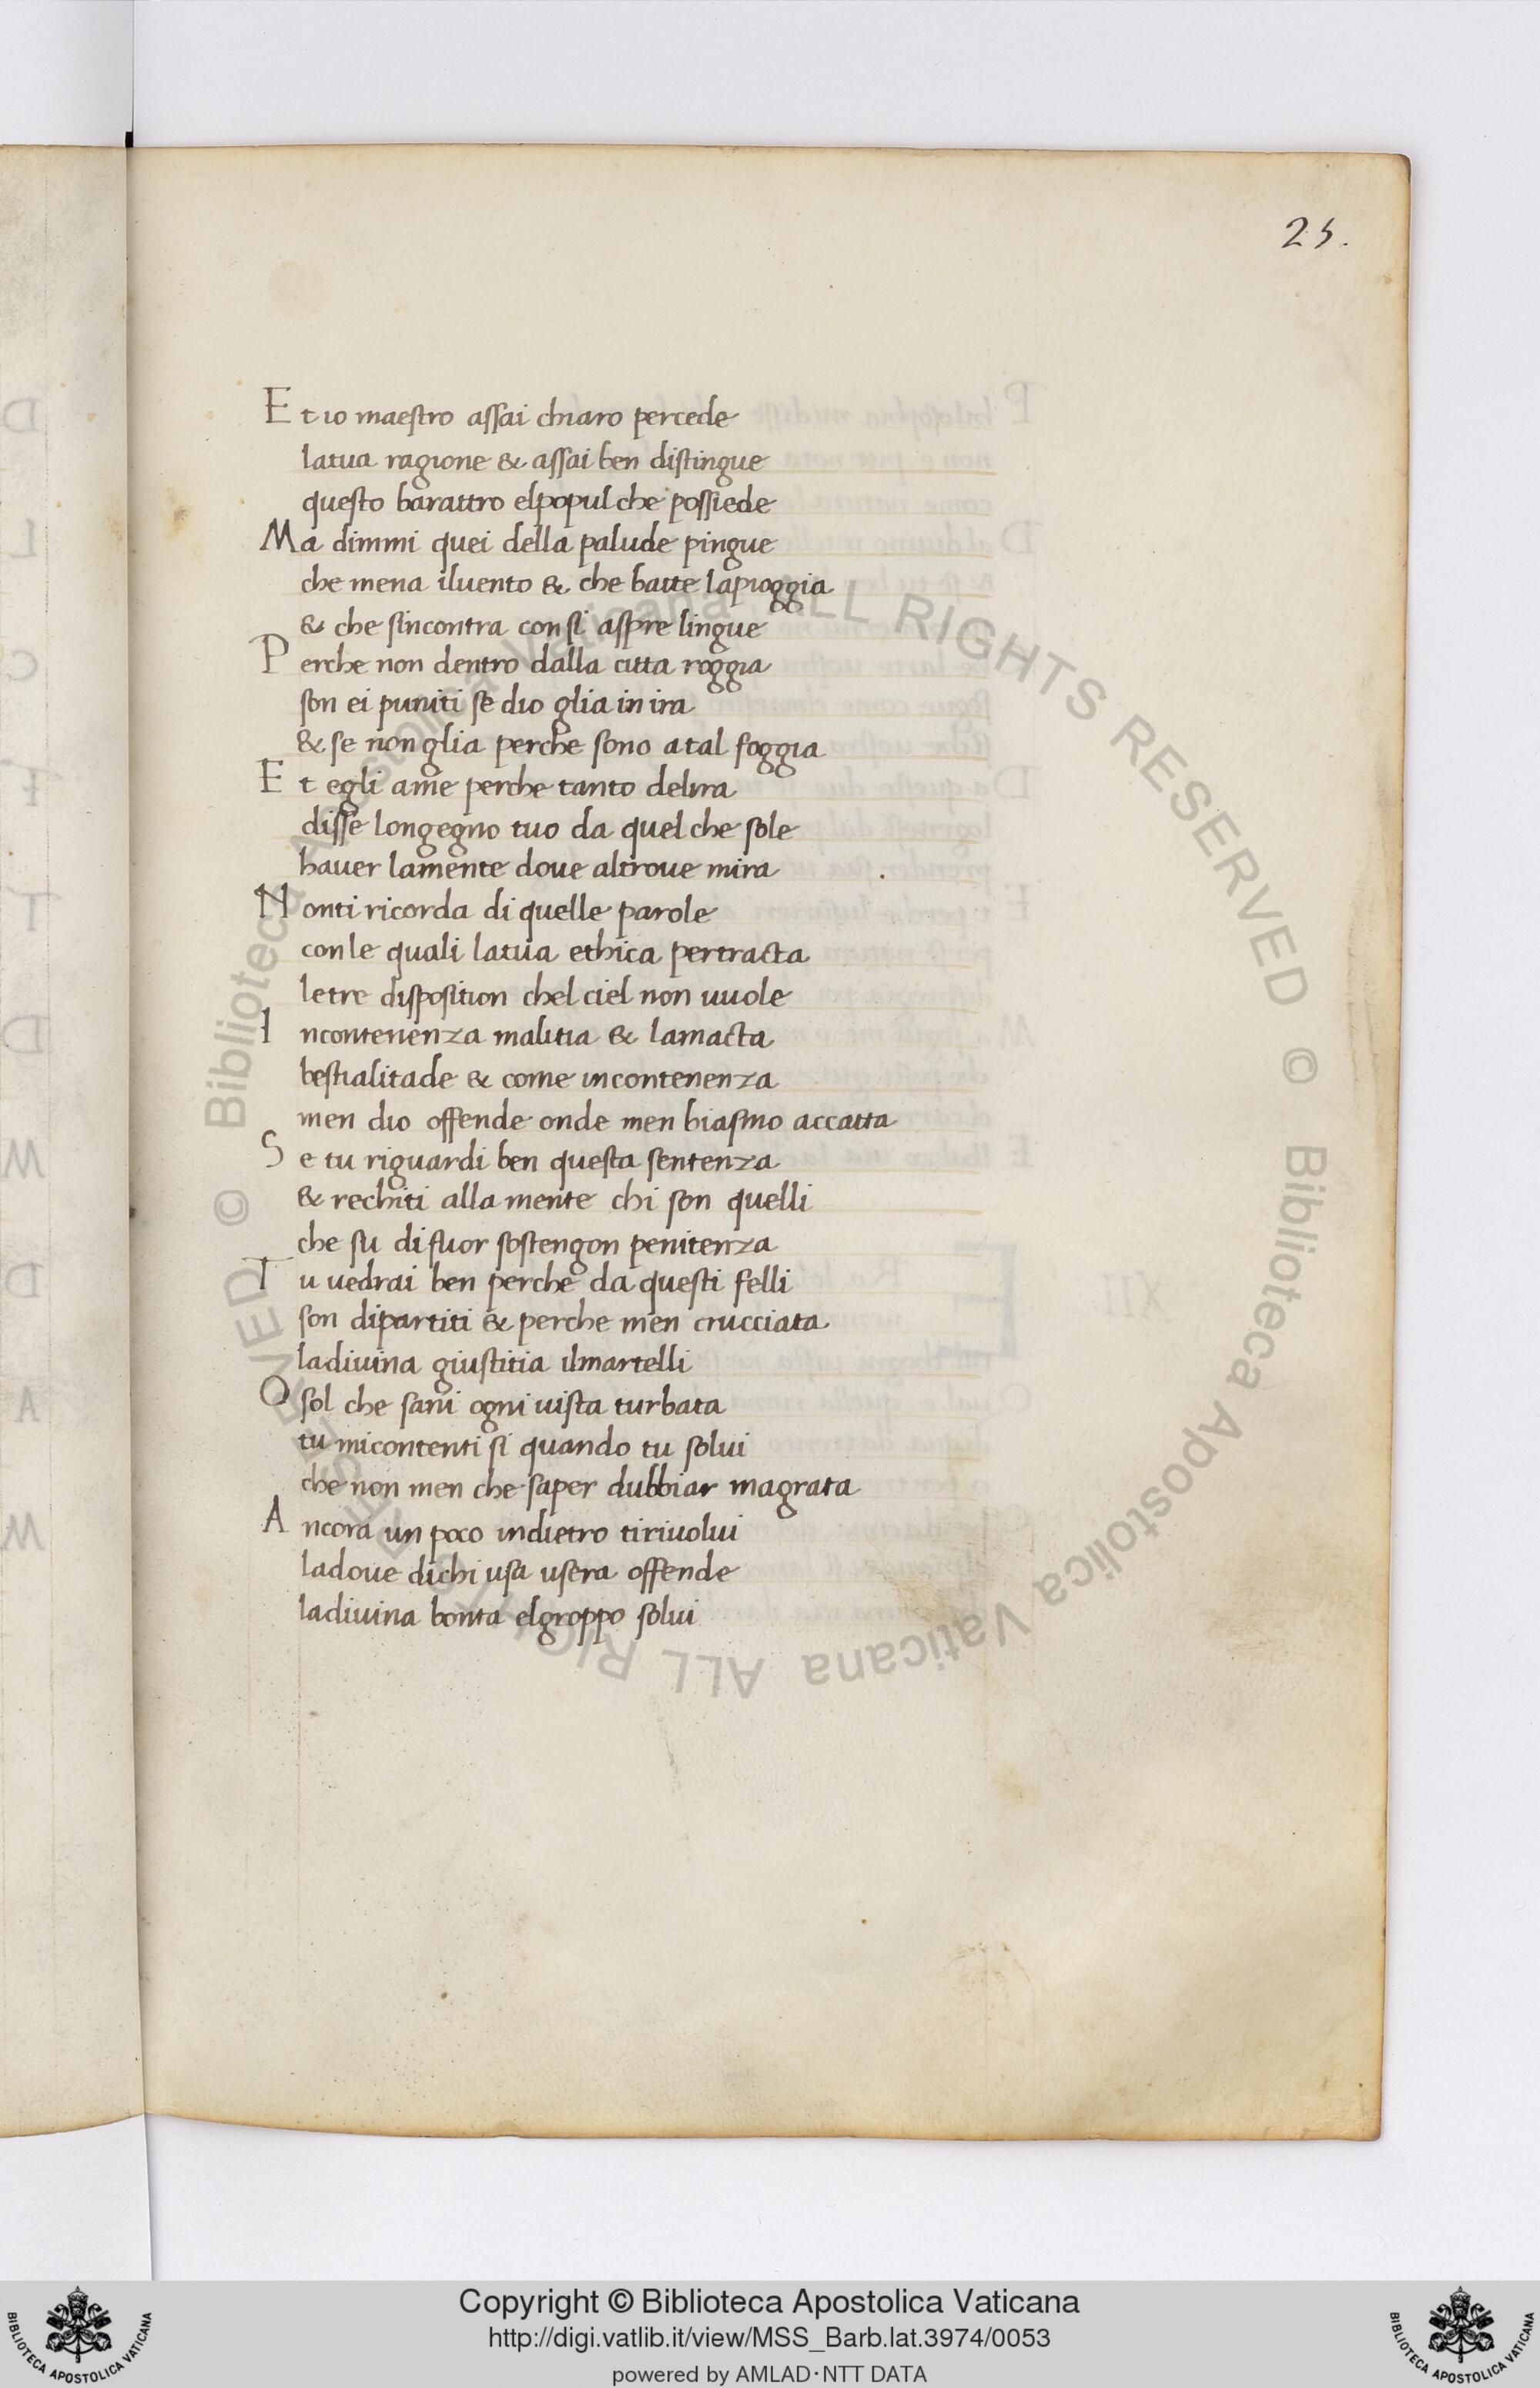 25.
Et io maestro assai chiaro percede
latua ragione & assai ben distingue
questo barattro elpopul che possiede
Ma dimmi quei della palude pingue
che mena iluento & che batte lapioggia
& che sincontra con si aspre lingue
Perche non dentro dalla citta roggia
son ei puniti se dio glia in ira
& se non glia perche sono atal foggia
Et egli ame perche tanto delira
disse longegno tuo da quel che sole
hauer lamente doue altroue mira
Nonti ricorda di quelle parole
conle quali latua ethica pertracta
letre disposition chel ciel non uuole
Incontenenza malitia & lamacta
bestialitade & come incontenenza
men dio offende onde men biasmo accatta
Se tu riguardi ben questa sentenza
& rechiti alla mente chi son quelli
che su di fuor sostengon penitenza
Tu uedrai ben perche da questi felli
son dipartiti & perche men crucciata
ladiuina giustitia ilmartelli
O sol che sani ogni uista turbata
tu micontenti si quando tu solui
che non men che saper dubbiar magrata
Ancora un poco indietro tiriuolui
ladoue dichi usa usera offende
ladiuina bonta elgroppo solui
© Biblioteca Apostolica Vaticana ALL RIGHTS RESERVED © Biblioteca Apostolica Vaticana ALL RIGHTS RESERVED
BIBLIOTECA APOSTOLICA VATICANA
Copyright © Biblioteca Apostolica Vaticana
http://digi.vatlib.it/view/MSS_Barb.lat.3974/0053
powered by AMLAD·NTT DATA
BIBLIOTECA APOSTOLICA VATICANA